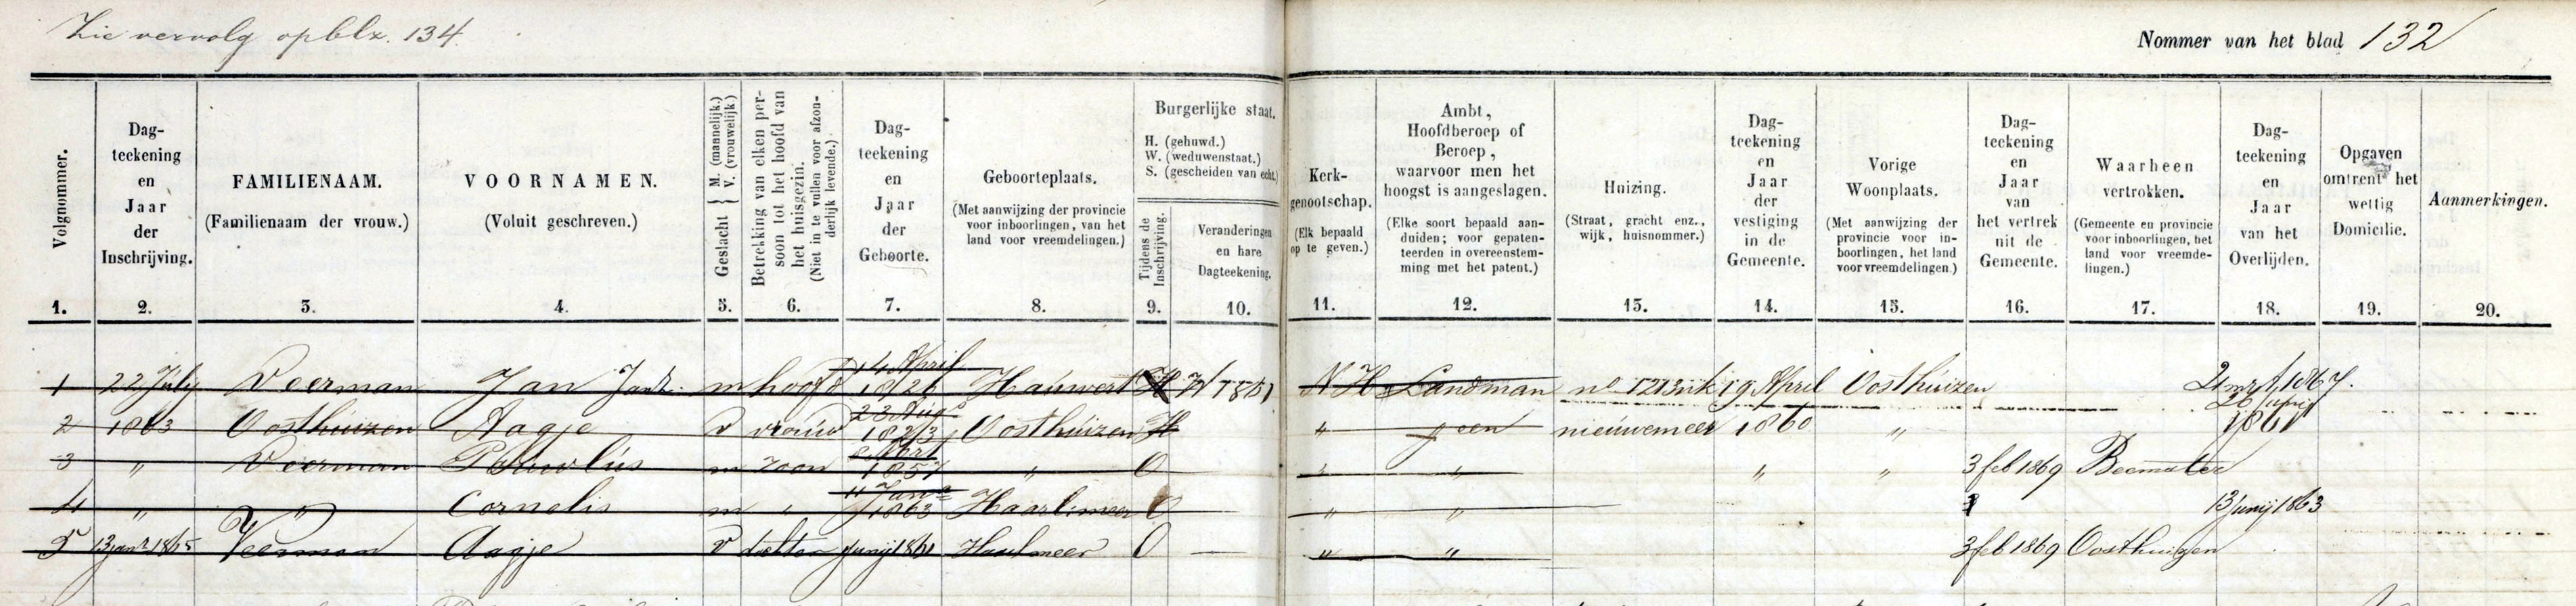 Zie vervolg op blz. 134.
Nommer van het blad 132
Volgnommer.
Dag-
teekening
en
Jaar
der
Inschrijving.
FAMILIENAAM.
(Familienaam der vrouw.)
VOORNAMEN.
(Voluit geschreven.)
Geslacht { M. (mannelijk.)
V. (vrouwelijk.)
Betrekking van elken per-
soon tot het hoofd van
het huisgezin.
(Niet in te vullen voor afzon-
derlijk levende.)
Dag-
teekening
en
Jaar
der
Geboorte.
Geboorteplaats.
(Met aanwijzing der provincie
voor inboorlingen, van het
land voor vreemdelingen.)
Burgerlijke staat.
H. (gehuwd.)
W. (weduwenstaat.)
S. (gescheiden van echt.)
Tijdens de
Inschrijving.
Veranderingen
en hare
Dagteekening.
Kerk-
genootschap.
(Elk bepaald
op te geven.)
Ambt,
Hoofdberoep of
Beroep,
waarvoor men het
hoogst is aangeslagen.
(Elke soort bepaald aan-
duiden; voor gepaten-
teerden in overeenstem-
ming met het patent.)
Huizing.
(Straat, gracht enz.,
wijk, huisnommer.)
Dag-
teekening
en
Jaar
der
vestiging
in de
Gemeente.
Vorige
Woonplaats.
(Met aanwijzing der
provincie voor in-
boorlingen, het land
voor vreemdelingen.)
Dag-
teekening
en
Jaar
van
het vertrek
uit de
Gemeente.
Waarheen
vertrokken.
(Gemeente en provincie
voor inboorlingen, het
land voor vreemde-
lingen.)
Dag-
teekening
en
Jaar
van het
Overlijden.
Opgaven
omtrent het
wettig
Domicilie.
Aanmerkingen.
1. 2. 3. 4. 5. 6. 7. 8. 9. 10. 11. 12. 13. 14. 15. 16. 17. 18. 19. 20.
14 April
1 22 July Veerman Jan Jansz. m hoofd 1826 Hauwert H N H Landman 19 April Oosthuizen
2 1863 Oosthuizen Aagje v vrouw 1823 Oosthuizen H " geen nieuwemeer 1860 " 1861
3 " Veerman Pauwlus m zoon 1857 " O " " " " 3 feb 1869 Beemster
4 " " Cornelis m " 1863 Haarl:meer O " " 13 Junij 1863
5 13 jan 1865 Veerman Aagje v dochter Junij 1861 Haarlmeer O — " " 3 feb 1869 Oosthuizen